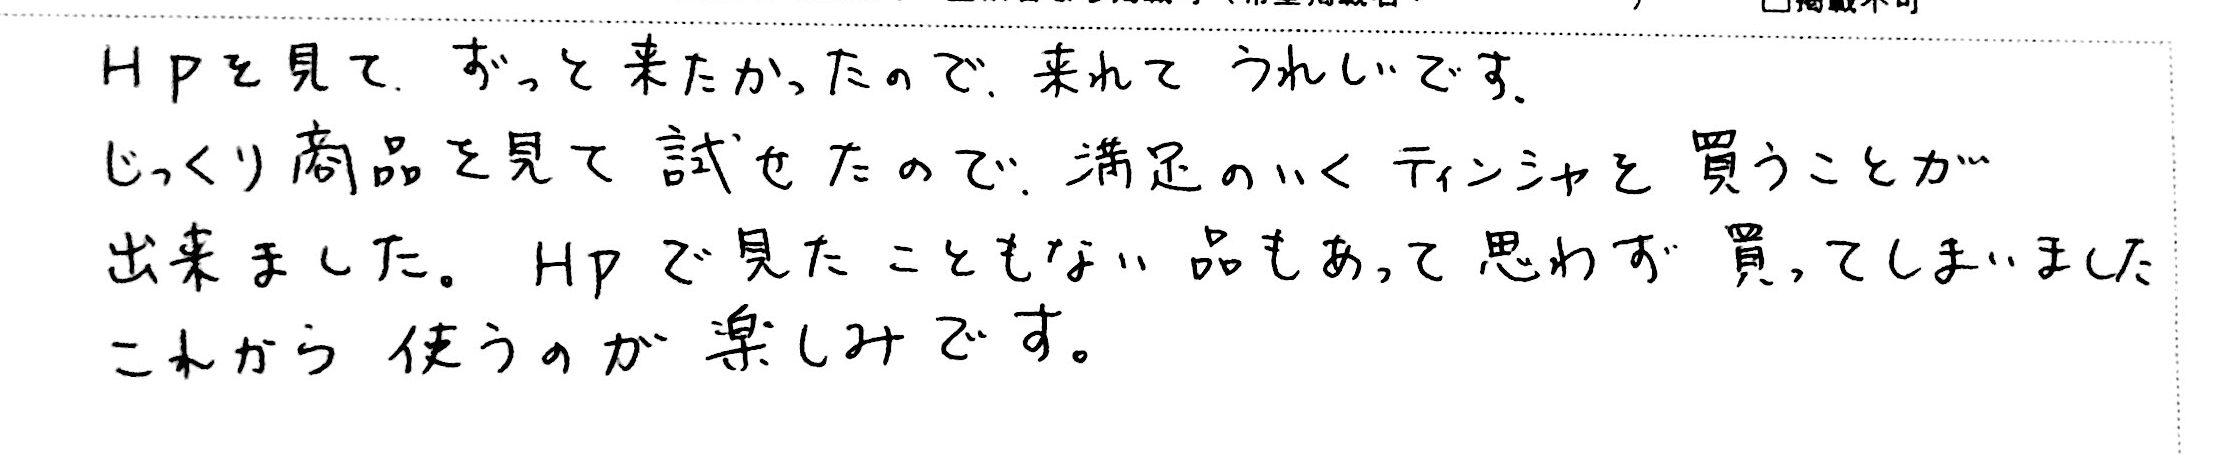 掲載不可
HPを見て、ずっと来たかったので、来れてうれしいです。
じっくり商品を見て試せたので、満足のいくティンシャを買うことが
出来ました。HPで見たこともない品もあって思わず買ってしまいました
これから使うのが楽しみです。